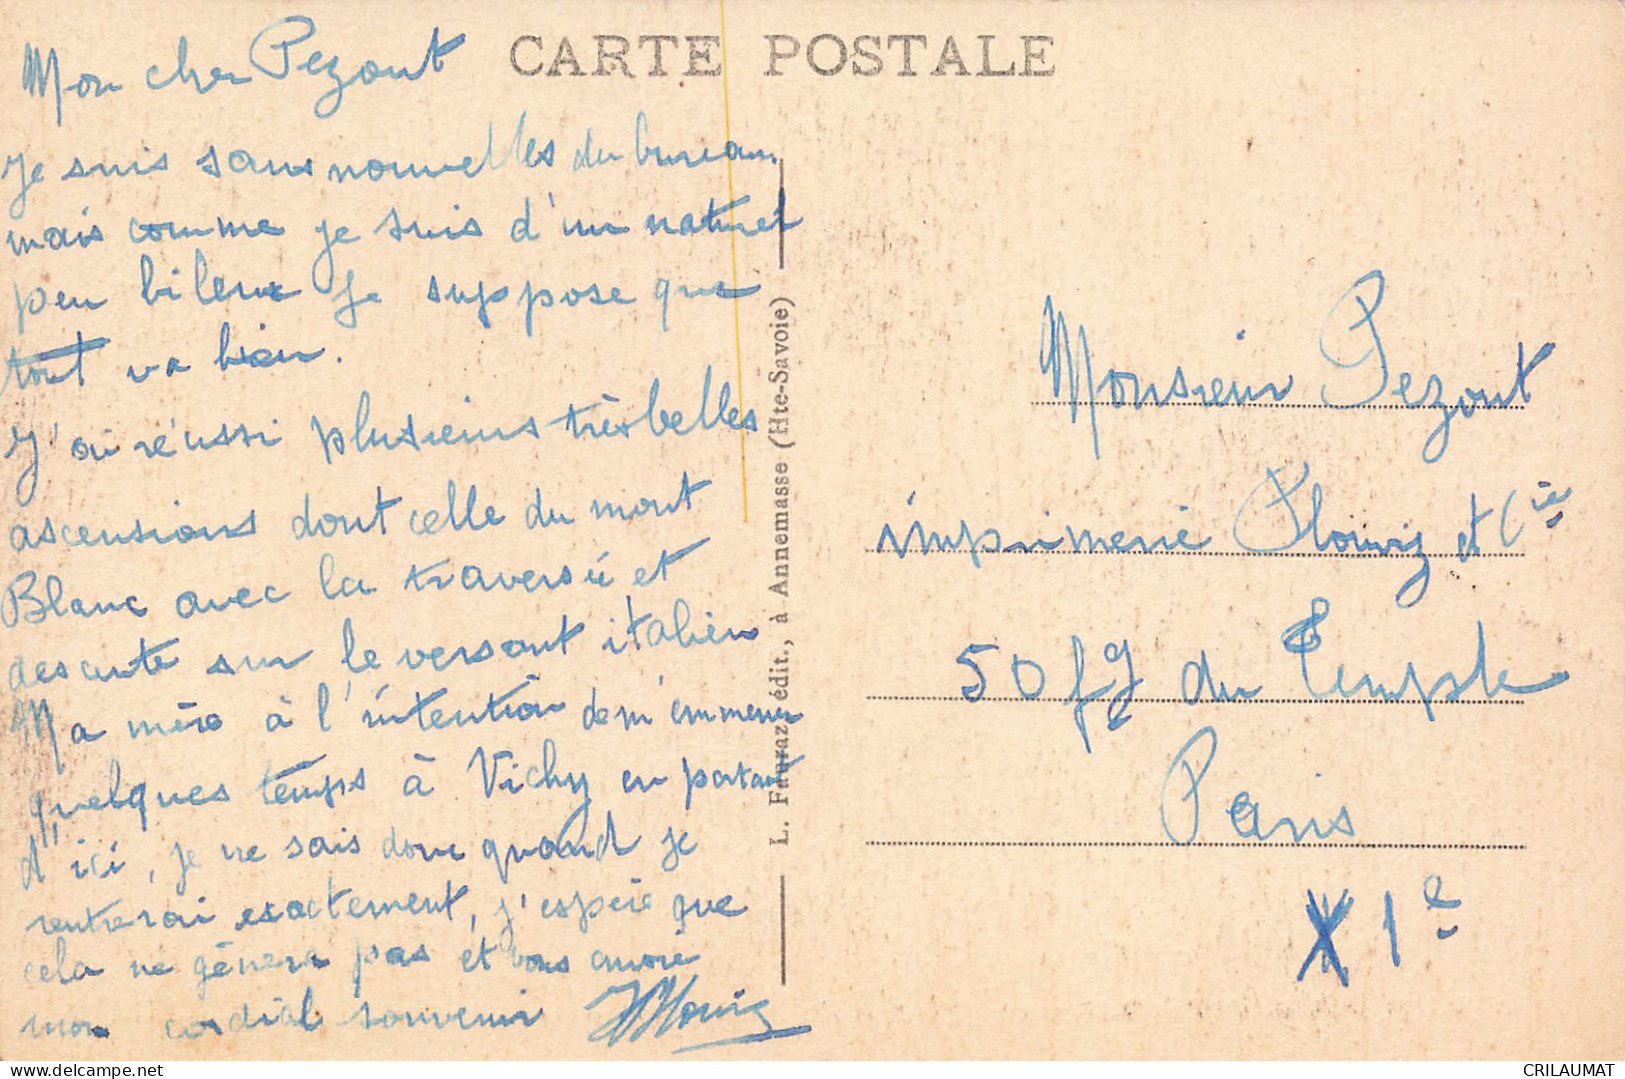 CARTE POSTALE
Mon cher Pezout
Je suis sans nouvelles du bureau
mais comme je suis d'un naturel
peu bileux je suppose que
tout va bien.
J'ai réussi plusieurs très belles
ascensions dont celle du mont
Blanc avec la traversée et
descente sur le versant italien
Ma mère à l'intention de m'emmener
quelques temps à Vichy en partant
d'ici, je ne sais donc quand je
rentrerai exactement, j'espère que
cela ne gênera pas et vous envoie
mon cordial souvenir
L. Fauraz édit., à Annemasse (Hte-Savoie)
Monsieur Pezout
imprimerie Plouviez et Cie
50 fg du Temple
Paris
X 1e
delcampe.net
CRILAUMAT